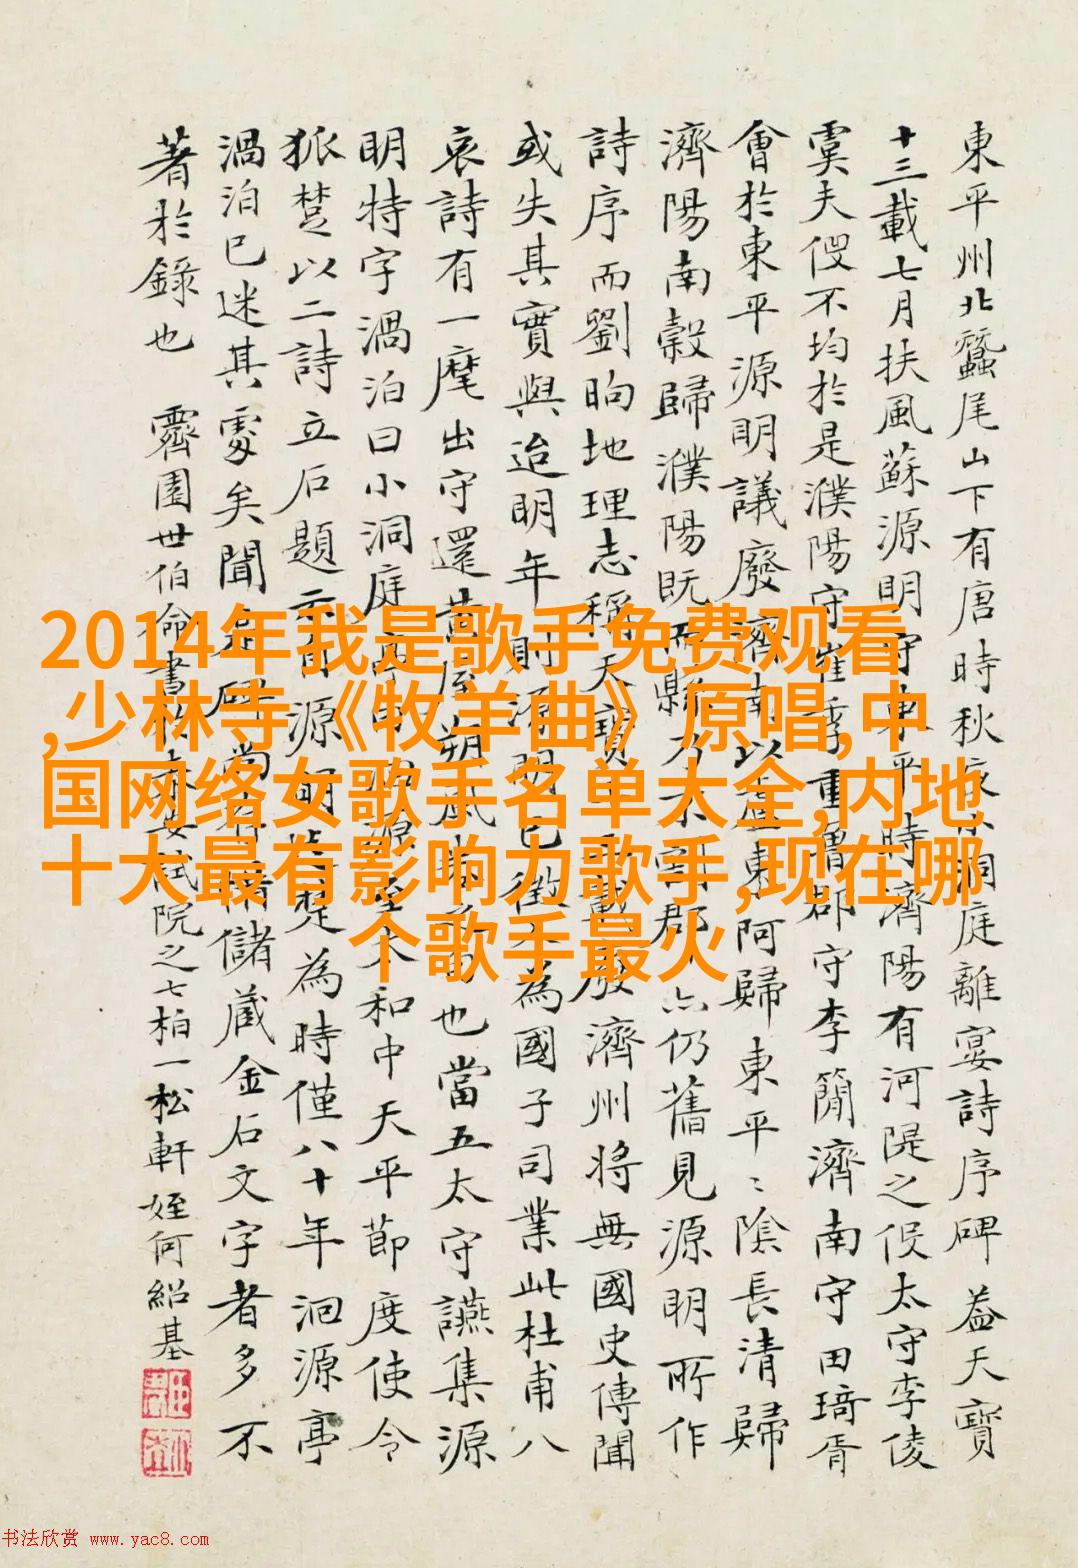 東平州北蠶尾山下有唐時秋夜小洞庭離宴詩序碑蓋天寶
十三載七月扶風蘇源明守東平時濟陽有河隄之役太守李倰
虞夫役不均於是濮陽守崔季重魯郡守李簡濟南守田琦胥
會於東平源明議廢濟南以盧東阿歸東平〻陰長清歸
濟陽南穀歸濮陽既而縣乃不割郡亦仍舊見源明所作
詩序而劉昫地理志稱天寶十三載廢濟州將無國史傳聞
或失其實與迨明年則源明已徵入為國子司業此杜甫八
哀詩有一麾出守還黃屋朔風也當五太守讌集源
明特字渦泊曰小洞庭和中天平節度使令
狐楚以二詩立石題云自源明楚為時僅八十年洄源亭
渦泊已迷其處矣聞是碑尚儲蔵金石文字者多不
著於錄也 霽園世伯命書試院之七柏一松軒 姪何紹基
2014年我是歌手免费观看
,少林寺《牧羊曲》原唱,中
国网络女歌手名单大全,内地
十大最有影响力歌手,现在哪
个歌手最火
书法欣赏 www.yac8.com